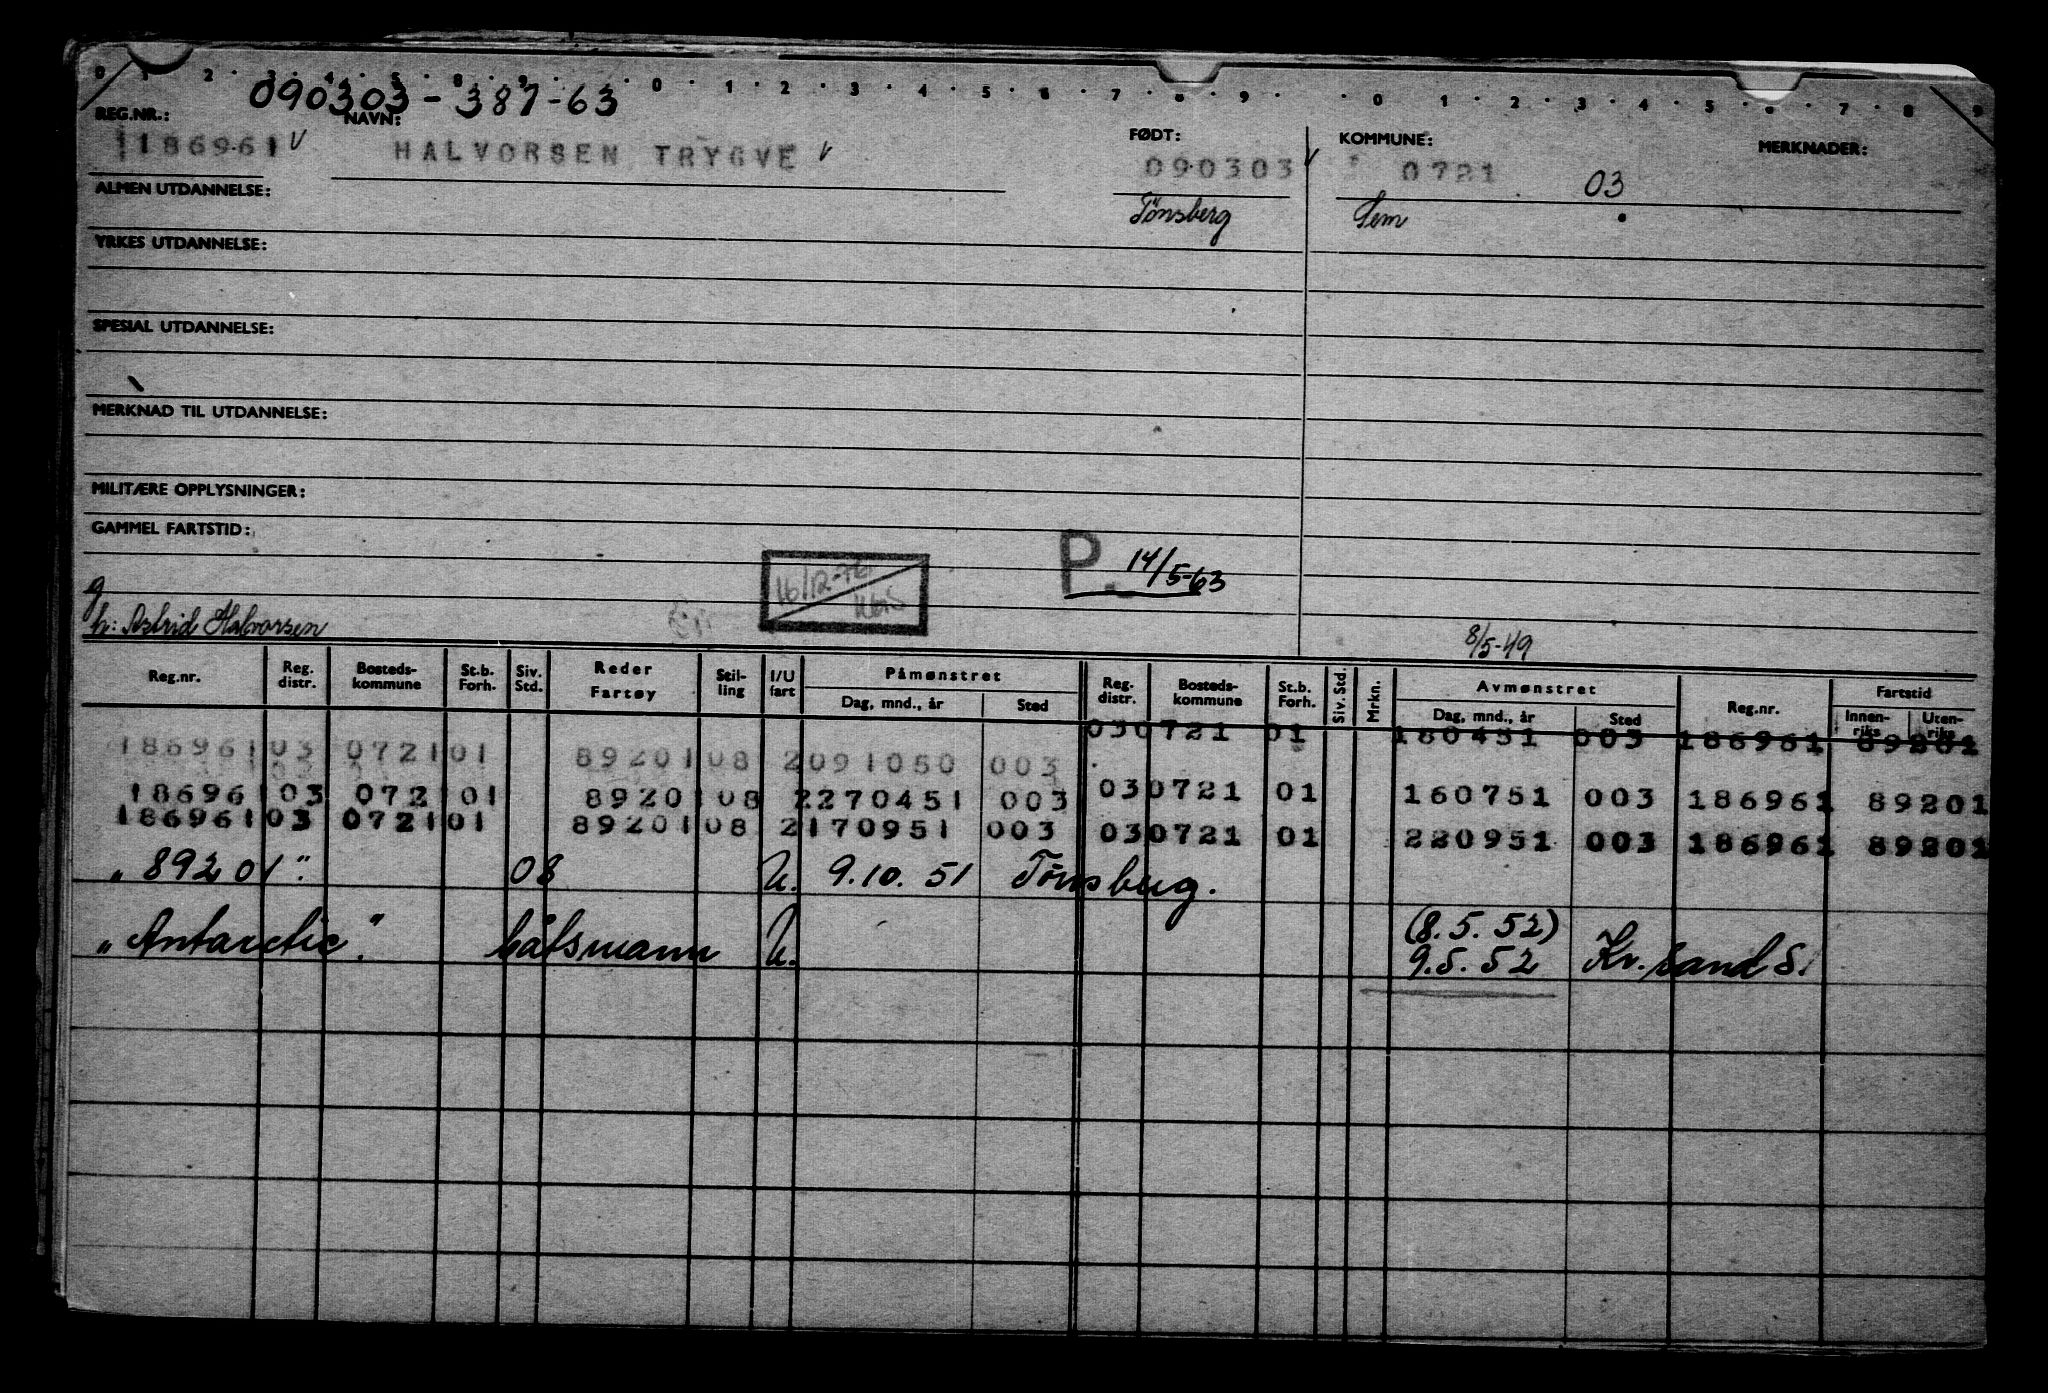 0 1 2 · 3 · 4 · 5 · 8 · 9 · · 0 · 1 · 2 · 3 · 4 · 5 · 6 · 7 · 8 · 9 · · 0 · 1 · 2 · 3 · 4 · 5 · 6 · 7 · 8 · 9
090303-387-63
REG.NR.: NAVN: FØDT: KOMMUNE: MERKNADER:
186961 HALVORSEN TRYGVE 090303 0721 03
ALMEN UTDANNELSE: Tönsberg Sem
YRKES UTDANNELSE:
SPESIAL UTDANNELSE:
MERKNAD TIL UTDANNELSE:
MILITÆRE OPPLYSNINGER:
GAMMEL FARTSTID:
16/12-76 P. 14/5-63
g
h: Astrid Halvorsen 8/5-49
Reg.nr. Reg. distr. Bosteds-kommune St.b. Forh. Siv. Std. Reder Fartøy Stil-ling I/U fart Påmønstret Dag, mnd., år Sted Reg. distr. Bosteds-kommune St.b. Forh. Siv. Std. Mrkn. Avmønstret Dag, mnd., år Sted Reg.nr. Fartstid Innen-riks Uten-riks
186961 03 0721 01 89201 08 2 091050 003 03 0721 01 180451 003 186961 89201
186961 03 0721 01 89201 08 2 270451 003 03 0721 01 160751 003 186961 89201
186961 03 0721 01 89201 08 2 170951 003 03 0721 01 220951 003 186961 89201
"89201" 08 U. 9.10.51 Tönsberg.
"Antarctic" båtsmann U. (8.5.52)
9.5.52 Kr.sand S.